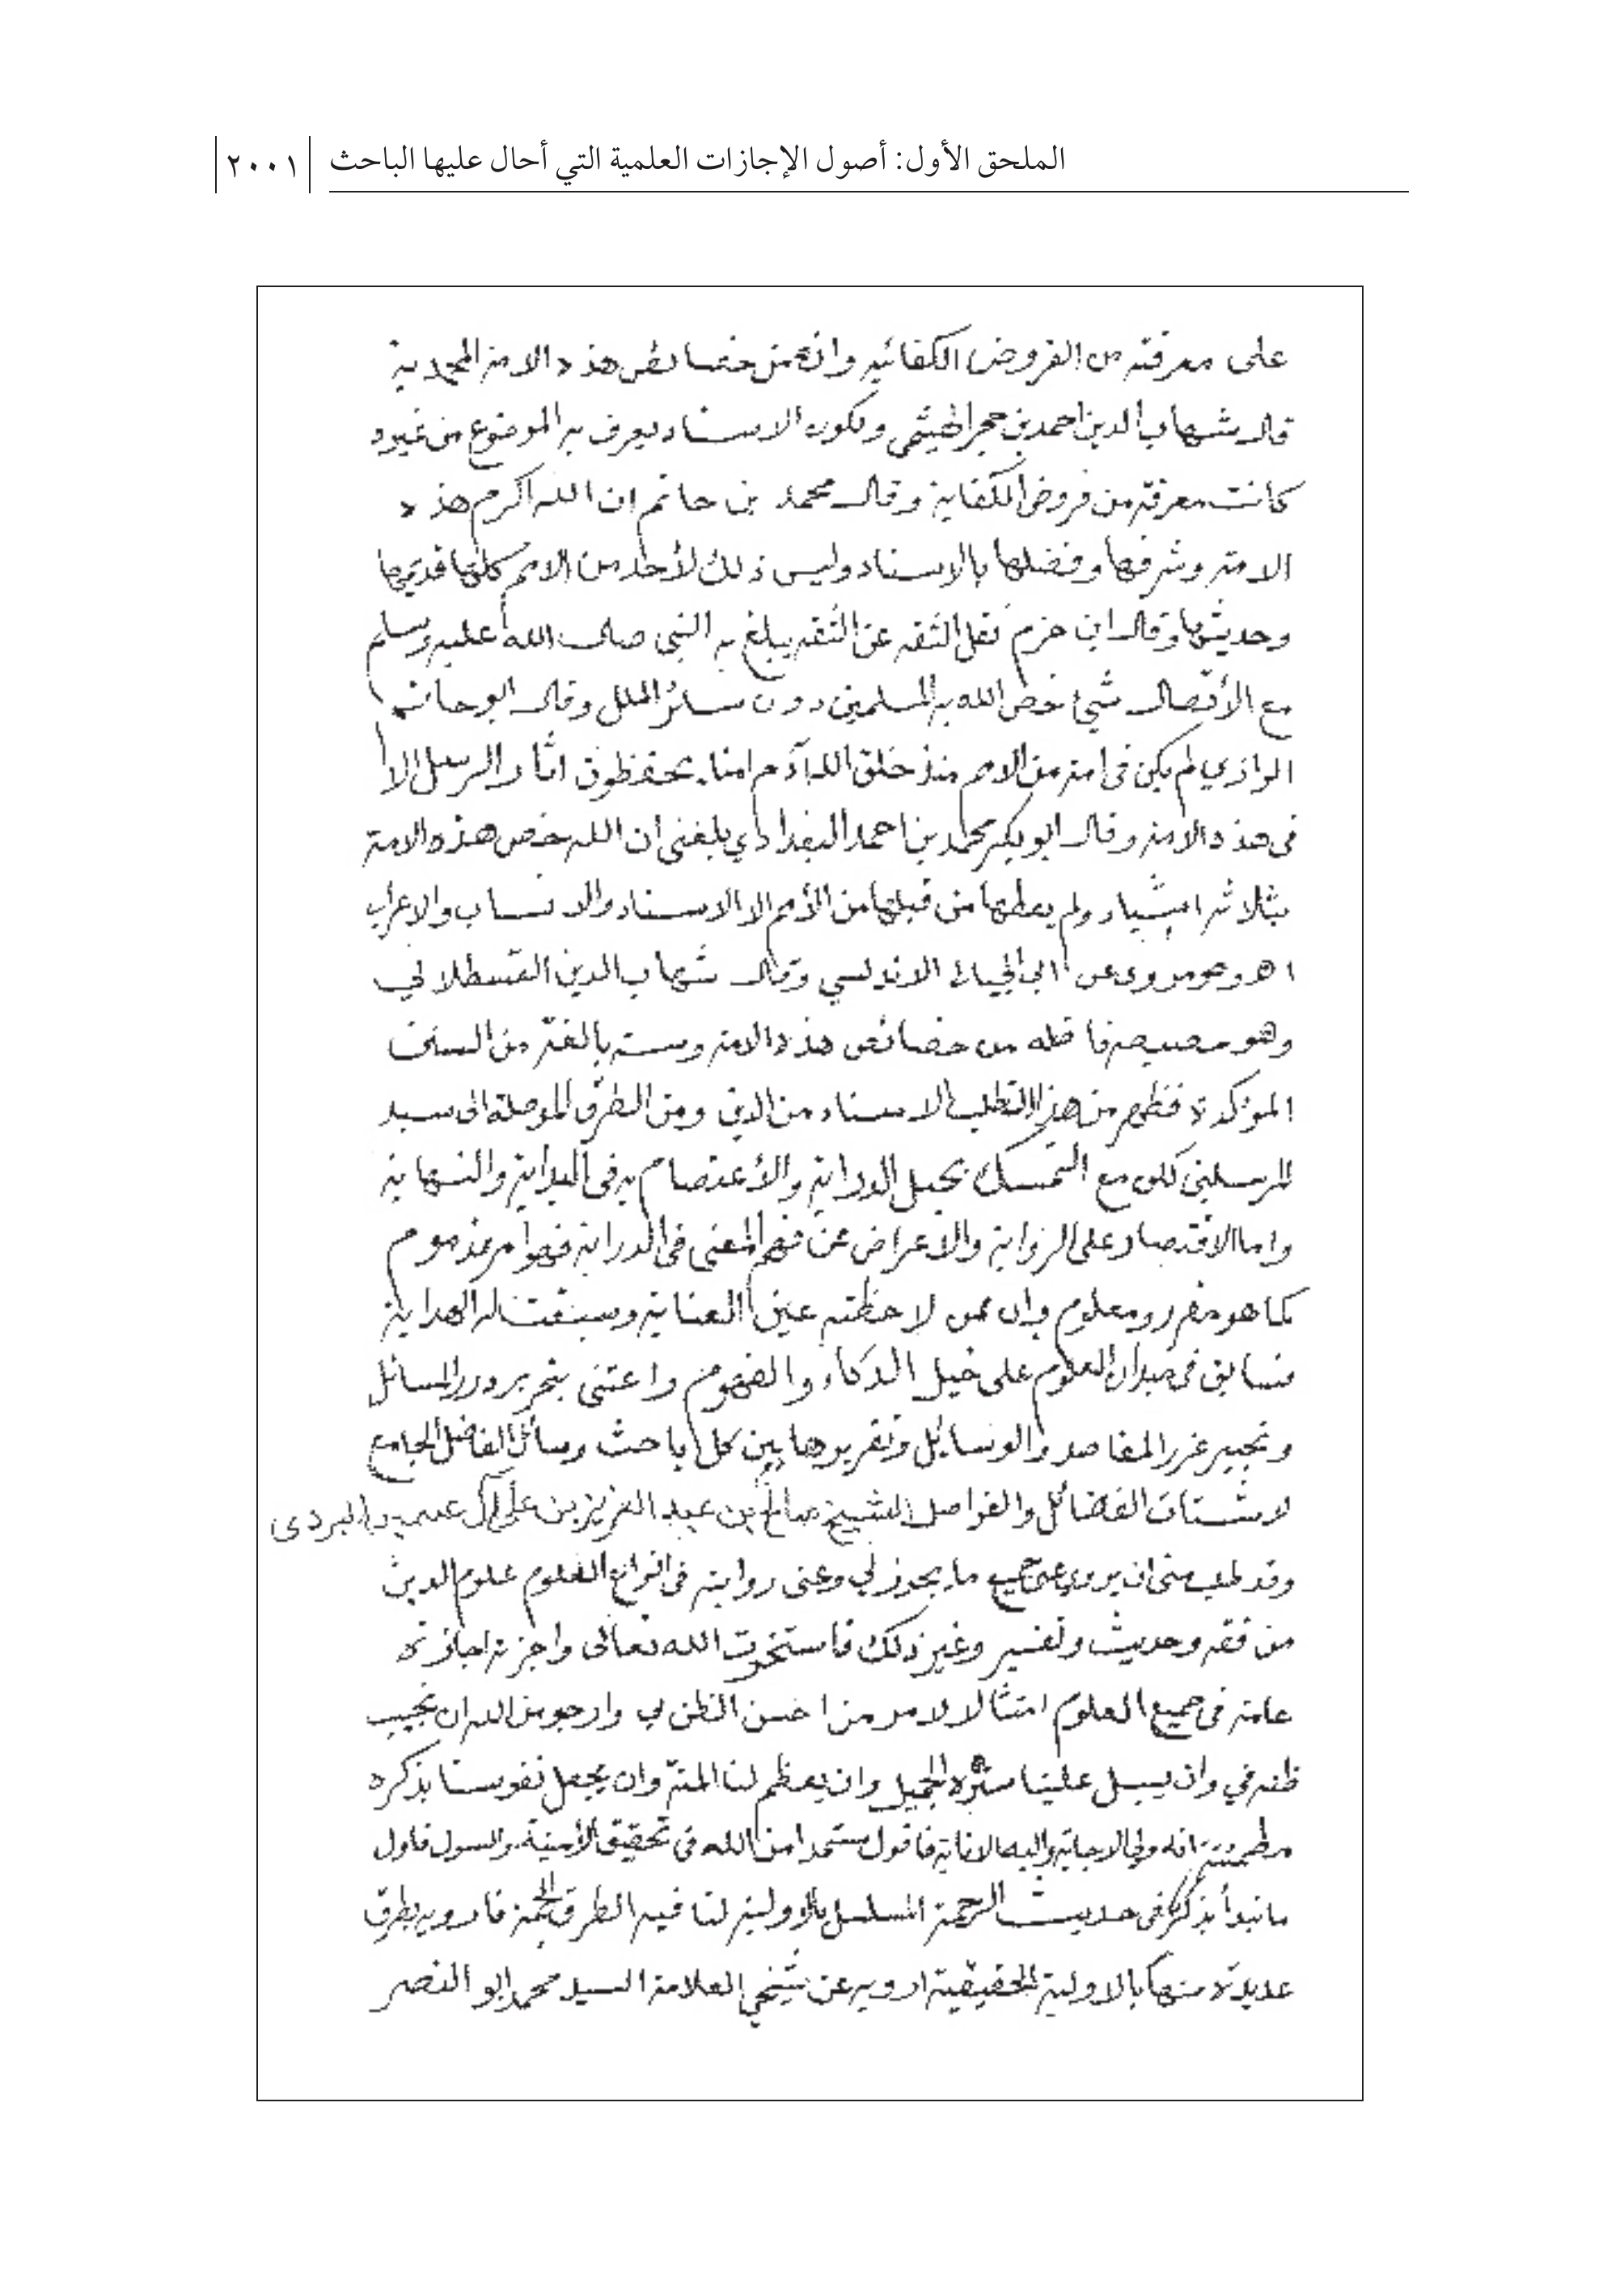 الملحق الأول: أصول الإجازات العلمية التي أحال عليها الباحث ٢٠٠١
على معرفته من الفروض الكفائيه وانه من خصائص هذه الامة المحمدية
قال شهاب الدين احمد بن حجر الهيثمي ولكون الاسناد يعرف به الموضوع من غيره
كانت معرفته من فروض الكفاية وقال محمد بن حاتم ان الله اكرم هذه
الامة وشرفها وفضلها بالاسناد وليس ذلك لأحد من الامم كلها قديمها
وحديثها وقال ابن حزم نقل الثقه عن الثقه يبلغ به النبي صلى الله عليه وسلم
مع الأتصال شيئ خص الله به المسلمين دون سائر الملل وقال ابو حاتم
الرازي لم يكن في امة من الامم منذ خلق الله آدم امناء يحفظون اثار الرسل الا
في هذه الامة وقال ابو بكر محمد بن احمد البغدادي بلغني ان الله خص هذه الامة
بثلاثه اشياء ولم يعطها من قبلها من الأمم الا الاسناد والانساب والاعراب
اهـ وهو مروي عن ابي الجياني الاندلسي وقال شهاب الدين القسطلاني
وهو خصيصة فاضله من خصائص هذه الامة وسنة بالغة من السنن
المؤكدة فظهر من هذا التطلب الاسناد من الدين ومن الطرق الموصلة الى سيد
المرسلين لكن مع التمسك بحبل الدراية والأعتصام به في البداية والنهاية
واما الاقتصار على الرواية والاعراض عن فهم المعنى في الدراية فهو امر مذموم
كما هو مقرر ومعلوم وان ممن لاحظته عين العناية وسبقت له الهداية
فسابق في ميدان العلوم على خيل الذكاء والفهوم واعتنى بتحرير درر المسائل
وتحبير غرر المقاصد والوسائل وتقريرها بين كل باحث وسائل الفاضل الجامع
لاشتات الفضائل والفواضل الشيخ صالح بن عبد العزيز بن علي آل عسير البردى
وقد طلب مني ان يروي عني جميع ما يجوز لي وعني روايته في انواع العلوم علوم الدين
من فقه وحديث وتفسير وغير ذلك فاستخرت الله تعالى واجزته اجازة
عامة في جميع العلوم امتثالا لامر من احسن الظن بي وارجو من الله ان يجيب
ظنه في وان يسبل علينا ستره الجميل وان يعظم لنا المنة وان يجعل نفوسنا بذكره
مطمئنة انه ولي الاجابة واليه الانابة فاقول مستمدا من الله في تحقيق الأمنية والسول فاول
ما نبدأ بذكره في حديث الرحمة المسلسل بالاولية لنا فيه الطرق الجمة فارويه بطرق
عديدة منها بالاولية الحقيقية ارويه عن شيخي العلامة السيد محمد ابو النصر